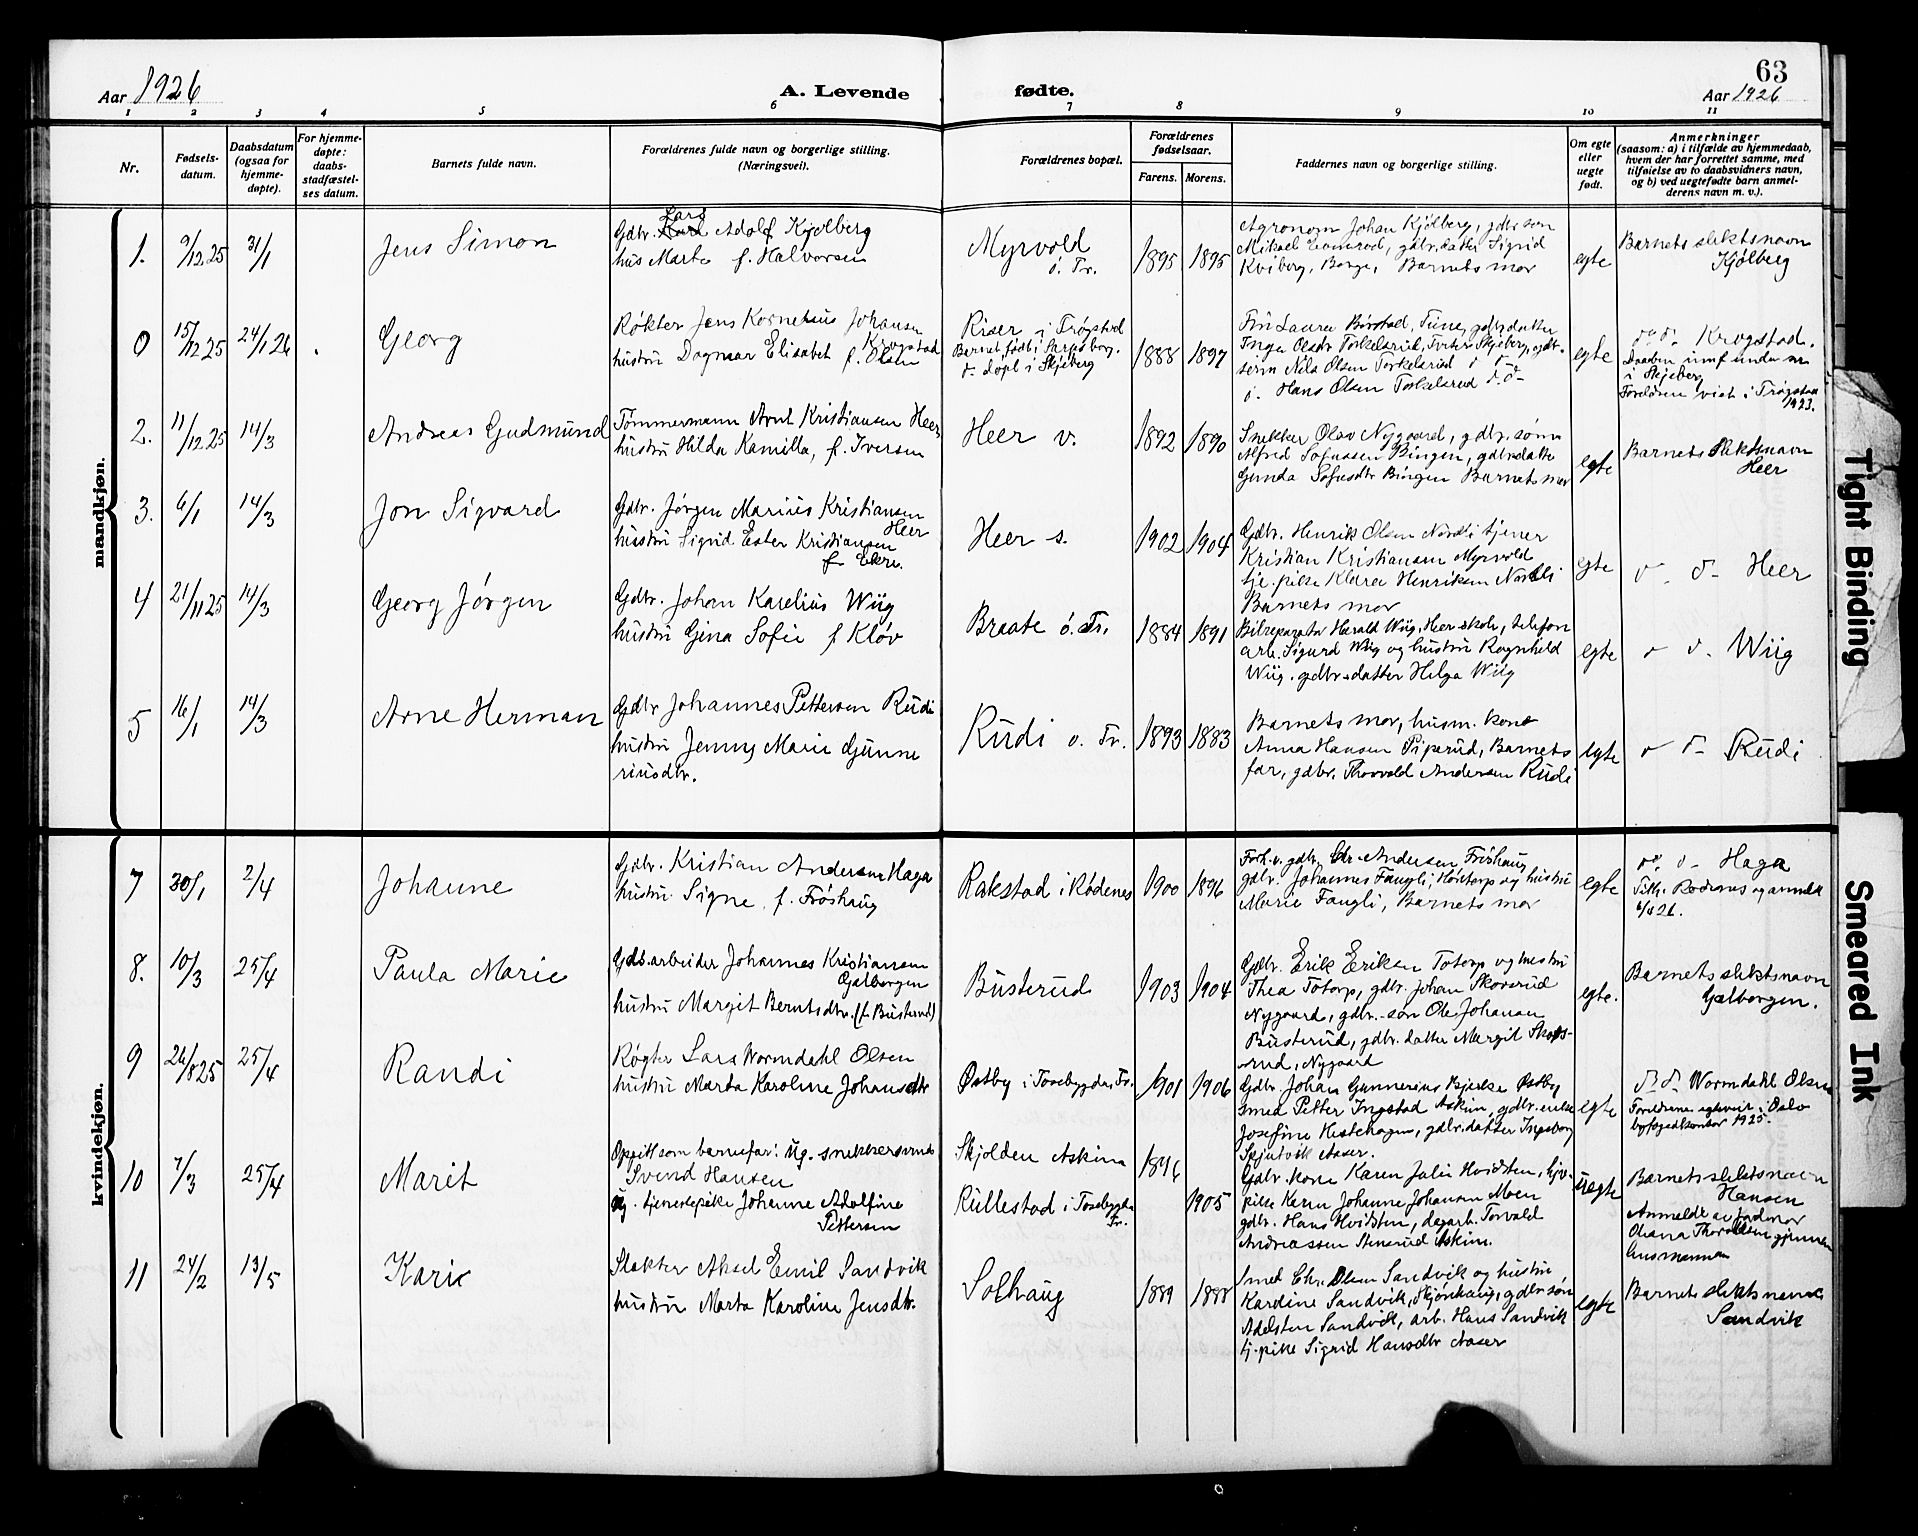 Aar 1926
A. Levende
fødte.
63
Aar 1926
1 2 3 4 5 6 7 8 9 10 11
Nr.
Fødsels-
datum.
Daabsdatum
(ogsaa for
hjemme-
døpte).
For hjemme-
døpte:
daabs-
stadfæstel-
ses datum.
Barnets fulde navn.
Forældrenes fulde navn og borgerlige stilling.
(Næringsvei).
Forældrenes bopæl.
Forældrenes
fødselsaar.
Farens. Morens.
Faddernes navn og borgerlige stilling.
Om egte
eller
uegte
født.
Anmerkninger
(saasom: a) i tilfælde av hjemmedaab,
hvem der har forrettet samme, med
tilføielse av to daabsvidners navn,
og b) ved uegtefødte barn anmel-
derens navn m. v.).
mandkjøn.
1. 9/12 25 31/1 Jens Simon
Lars
Gdbr. Adolf Kjølberg
hus Marta f. Halvorsen
Myrvold
ö. Tr.
1895 1895
Agronom Johan Kjølberg, gdbr søn
Mikael, gdbr. datter Sigrid
Kviberg, Borge, Barnets mor
egte
Barnets slektsnavn
Kjølberg
0 15/12 25 24/1 26 Georg
Røkter Jens Kornelius Johansen
Krogstad
hustru Dagmar Elisabet f. Olsen
Riser i Trøgstad
Barnet født i Sarpsborg.
d. døpt i Skjeberg
1888 1897
Frü Laura Børstad, Tune, gdbr.datter
Inga Olsdr Torkelsrud, Skjeberg, gdbr-
serin Nils Olsen Torkelsrud
o. Hans Olsen Torkelsrud d. d-
egte
d. d. Krogstad.
Daaben innf under nr
i Skjeberg
Foreldren viet i Trøgstad
1923.
2. 11/12 25 14/3 Andreas Gudmund
Tømmermann Arnt Kristiansen Heer
hustru Hilda Kamilla, f. Iversen
Heer v.
1892 1890
Snekker Olav Nygaard, gdbr. sønn
Alfred Sofussen Bingen, gdbrdatter
Gunda Sofusdtr Bingen Barnets mor
egte
Barnets slektsnavn
Heer
3. 6/1 14/3 Jon Sigvard
Gdbr. Jørgen Marius Kristiansen
Heer
hustru Sigrid Ester Kristiansen
f. Ekre.
Heer s.
1902 1904
Gdbr. Henrik Olsen Nordli tjener
Kristian Kristiansen Myrvold
tje.pike Klara Henriksen Nordli
Barnets mor
egte
d. d- Heer
4 21/11 25 14/3 Georg Jørgen
Gdbr. Johan Karelius Wiig
hustru Gina Sofie f Kløv
Braate ö. Tr.
1884 1891
Bilreparatør Harald Wiig, Heer skole, telefon
arb. Sigurd Wiig og hustru Ragnhild
Wiig. gdbrsdatter Helga Wiig
egte
d d. Wiig
5 16/1 14/3 Arne Herman
Gdbr Johannes Pettersen Rudi
hustru Jenny Marie Gunne
riusdtr.
Rudi v. Tr.
1893 1883
Barnets mor, husm. kone
Anna Hansen Piperud, Barnets
far, gdbr. Thorvald Andersen Rudi
egte
d d- Rudi
kvindekjøn.
7 30/1 2/4 Johanne
Gdbr. Kristian Andersen Haga
hustru Signe f. Frøshaug
Rakstad i Rødenes
1900 1896
Forh.v. gdbr. Chr. Andersen Frøshaug
gdbr. Johannes Fangli, Høitorp og hustru
Marie Fangli, Barnets mor
egte
d. d- Haga
8. 10/3 25/4 Paula Marie
Gdb.arbeider Johannes Kristiansen
Galborgen
hustru Margit Berntsdtr. (f. Busterud)
Busterud
1903 1904
Gdbr. Erik Eriksen Totorp og hustru
Thea Totorp, gdbr. Johan Skovsrud
Nygaard, gdbr.-søn Ole Johansen
Busterud, gdbr. datter Margit Skovs-
rud, Nygaard
egte.
Barnets slektsnavn
Galborgen.
9 26/8 25 25/4 Randi
Røgter Lars Wormdahl Olsen
hustru Marta Karoline Johansdtr
Østby i Tosebygda, Tr.
1901 1906
Gdbr. Johan Gunnerius Bjerke Østby
smed Petter Ingstad Askim, gdbr. enke
Josefine Hestehagen, gdbr.datter Ingeborg
egte
d. d. Wormdahl Olsen
Foreldrene egteviet i Oslo
byfogedkontor 1925.
10 7/3 25/4 Marit
Opgit som barnefar: Ug. snekkersvend
Svend Hansen
ug. tjenestepike Johanne Adolfine
Pettersen
Skjolden Askim
Kullestad i Tosebygda
Tr.
1896
1905
Gdbr. kone Karen Julie Hvidsten, tj.-
pike Karen Johanne Johansen Moen
gdbr. Hans Hvidsten, dagarb. Torvald
Andreassen Stenerud Askim.
uegte
Barnets slektsnavn
Hansen
Anmeldt av jordmor
Olava Thoraldsen gjennem
lensmannen
11 24/2 13/5 Karin
Slakter Aksel Emil Sandvik
hustru Marta Karoline Jensdtr.
Solhaug
1889 1888
Smed Chr. Olsen Sandvik og hustru
Kardine Sandvik, Skjønhaug, gdbr søn
Adelsten Sandvik, arb. Hans Sandvik
tj.pike Sigrid Hansdtr Aaser
egte
Barnets slektsnavn
Sandvik
Tight Binding
Smeared Ink